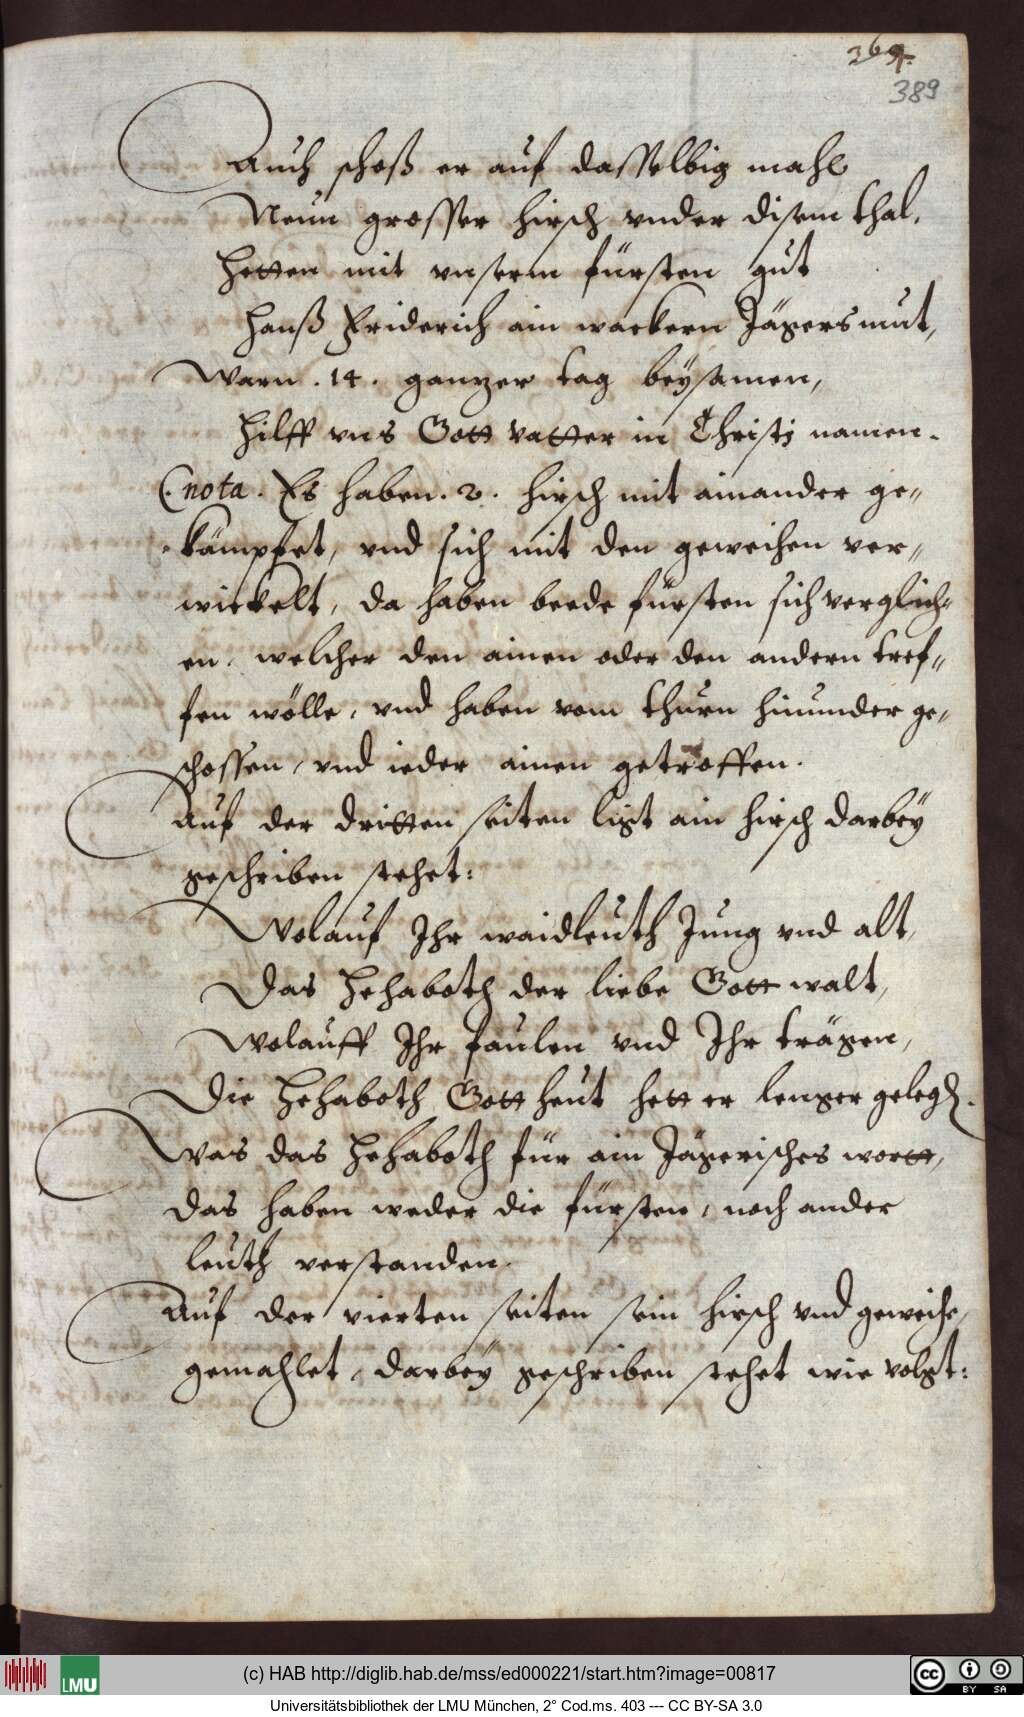 369.
389
Auch schoß er auf dasselbig mahl
Neun grosser hirsch vnder disem thal,
hetten mit vnserm fürsten gut
hanß Friderich ain wackern Jägersmut,
Warn .14. gantzer tag beysamen,
hilff vns Gott vatter in Christj namen.
(nota. Es haben .2. hirsch mit ainander ge-
kämpfet, vnd sich mit den geweihen ver-
wickelt, da haben beede fürsten sich verglich-
en, welcher den ainen oder den andern tref-
fen wölle, vnd haben vom thurn hinunder ge-
schossen, vnd ieder ainen getroffen.
Auf der dritten seiten ligt ain hirsch darbey
geschriben stehet:
Wolauf Ihr waidleuth Jung vnd alt,
Das hehaboth der liebe Gott walt,
Wolauff Ihr faulen vnd Ihr trägen,
Die hehaboth Gott heut hett er lenger gelegen.
Was das hehaboth für ain Jägerisches wortt,
das haben weder die fürsten, noch ander
leuth verstanden.
Auf der vierten seiten sein hirsch vnd geweihe,
gemahlet, darbey geschriben stehet wie volgt:
(c) HAB http://diglib.hab.de/mss/ed000221/start.htm?image=00817
LMU
cc BY SA
Universitätsbibliothek der LMU München, 2° Cod.ms. 403 --- CC BY-SA 3.0